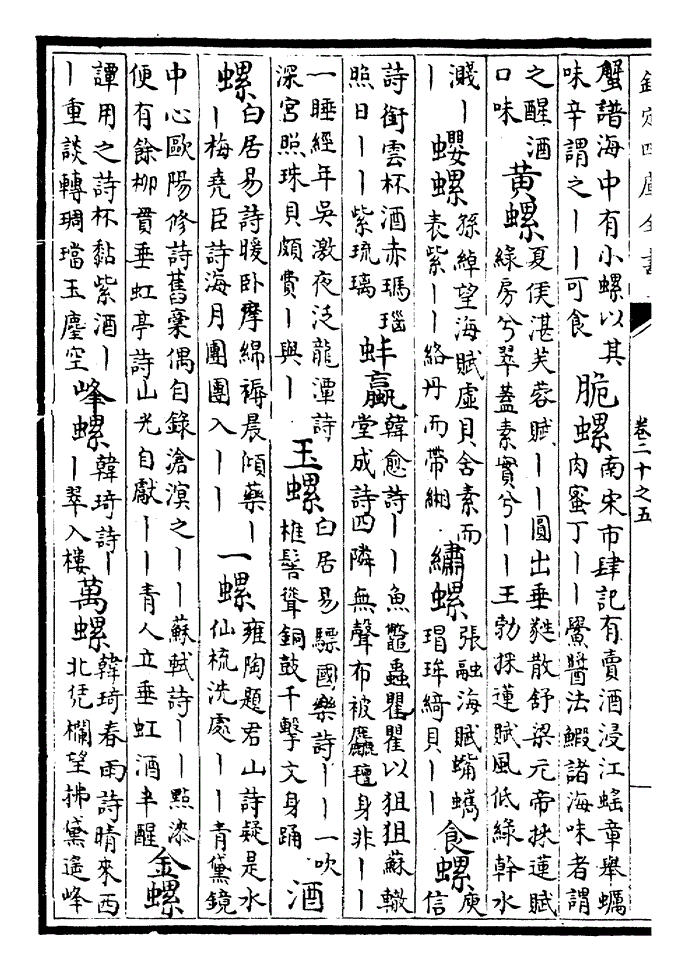 欽定四庫全書
卷二十之五
蟹譜海中有小螺以其
味辛謂之丨丨可食
脆螺
南宋市肆記有賣酒浸江䗂章舉蠣
肉蜜丁丨丨鱟醬法鰕諸海味者謂
之醒酒
口味
黃螺
夏侯湛芙蓉賦丨丨圓出垂蕤散舒梁元帝採蓮賦
綠房兮翠蓋素實兮丨丨王勃採蓮賦風低綠幹水
濺丨
丨
蠳螺
孫綽望海賦虛貝含素而
表紫丨丨絡丹而帶緗
繡螺
張融海賦蟕蠵
瑁蛑綺貝丨丨
食螺
庾
信
詩銜雲杯酒赤瑪瑙
照日丨丨紫琉璃
蚌蠃
韓愈詩丨丨魚鼈蟲瞿瞿以狙狙蘇轍
堂成詩四隣無聲布被麤氊身非丨丨
一睡經年吳激夜泛龍潭詩
深宮照珠貝頗費丨與丨
玉螺
白居易驃國樂詩丨丨一吹
椎髻聳銅鼓千擊文身踊
酒
螺
白居易詩暖卧摩綿褥晨傾藥丨
丨梅堯臣詩海月團團入丨丨
一螺
雍陶題君山詩疑是水
仙梳洗處丨丨青黛鏡
中心歐陽修詩舊稾偶自錄滄溟之丨丨蘇軾詩丨丨點漆
便有餘柳貫垂虹亭詩山光自獻丨丨青人立垂虹酒半醒
金螺
譚用之詩杯黏紫酒丨
丨重談轉琱璫玉麈空
峰螺
韓琦詩丨
丨翠入樓
萬螺
韓琦春雨詩晴來西
北凭欄望拂黛遙峰